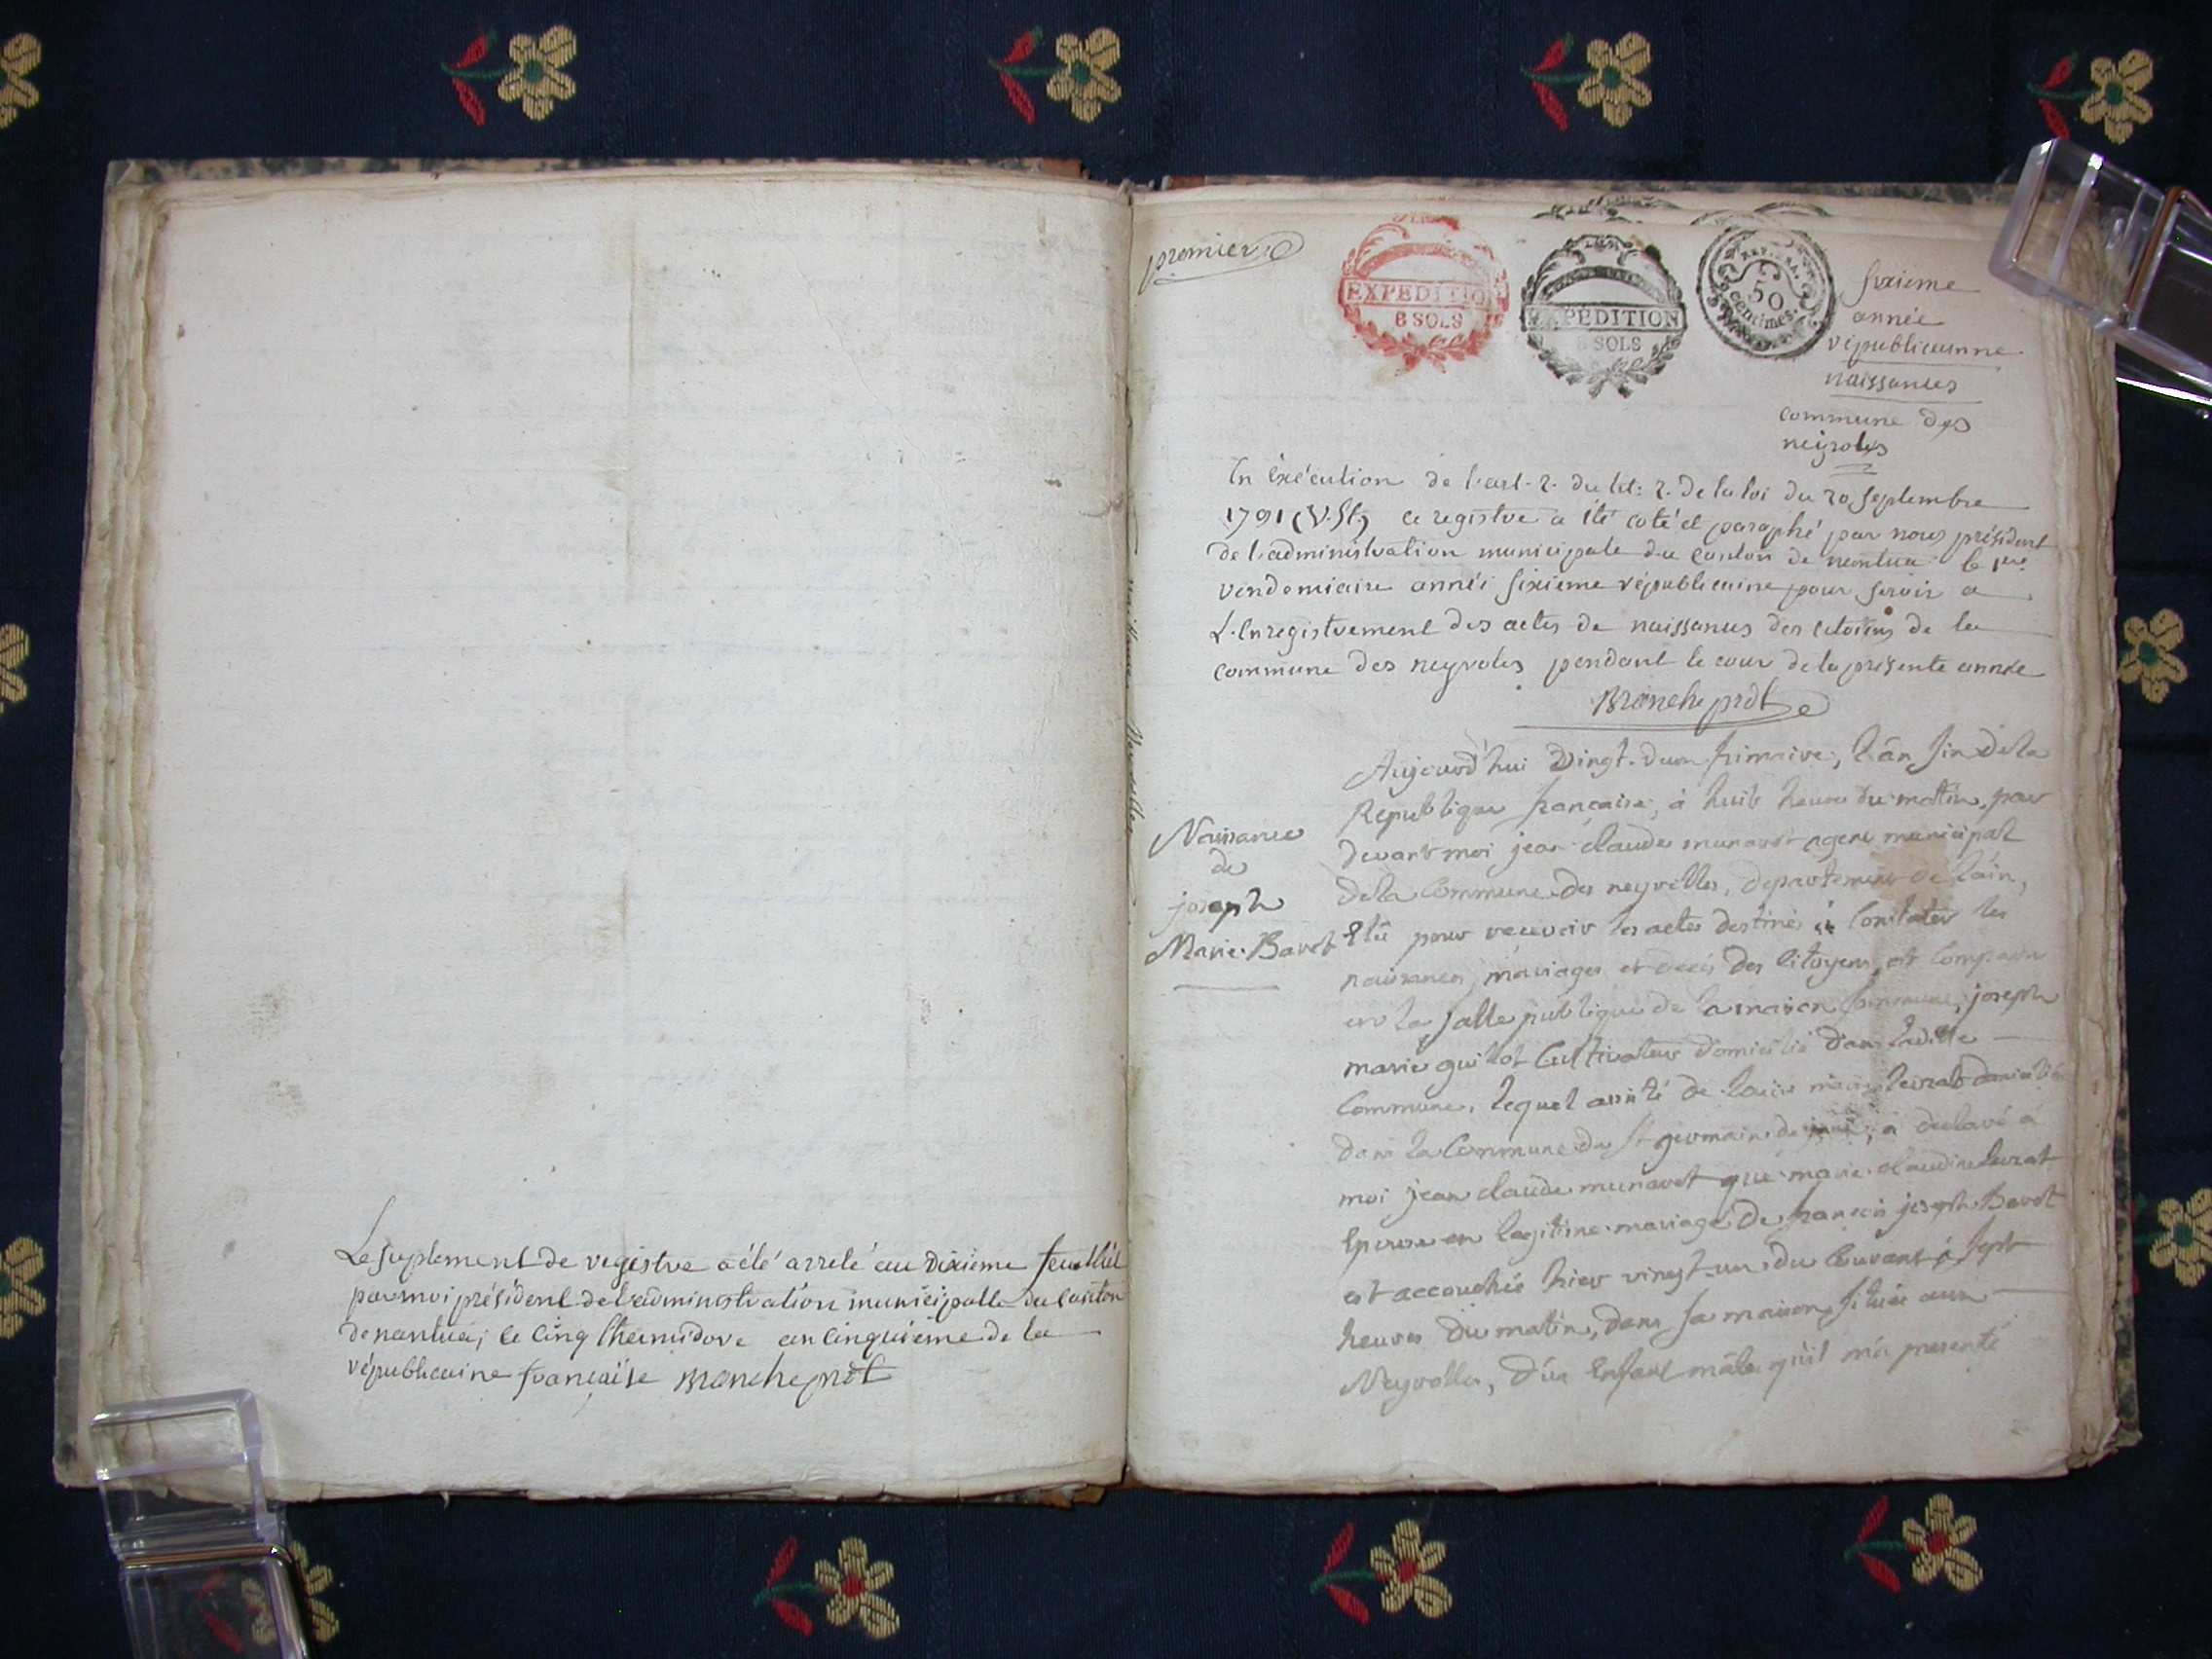 Le suplement de registre a été arrelé au dixieme feuillet
par moi président de l'administration municipalle du canton
de nantua, le cinq thermidore an cinquième de la
républicaine française Monche prdt
premier
EXPEDITIO
8 SOLS
EXPEDITION
8 SOLS
REP. FRA.
50
centimes.
sixieme
année
républicainne
naissances
commune des
neyroles
En éxécution de l'art. 2. du tit: 2. de la loi du 20 septembre
1791 (V. St) ce registre a été coté et paraphé par nous président
de l'administration municipale du canton de nantua le 1er
vendemiaire année sixieme républicaine pour servir a
L'enregistrement des actes de naissances des citoiens de la
commune des neyroles pendant le cour de la présente année
Monche prdt
Naissance
de
joseph
Marie Bavet
Aujourd'hui Vingt-deux frimaire, l'an six de la
Republique française, à huit heures du matin, par
devant moi jean claude munavet agent municipal
de la Commune des neyrolles, departement de l'ain,
Elû pour recevoir les actes destinés à Constater les
naissances, mariages et décès des Citoyens, est Comparu
en la salle publique de la maison Commune, joseph
marie guillot Cultivateur domicilié dans ladite
Commune, lequel assisté de levrat domicilié
dans la Commune de St germain de, a déclaré à
moi jean claude munavet que marie claudine levrat
Epouse en legitime mariage de francois joseph Bavet
est accouchée hier vingt-un du Courant à sept
heures du matin, dans sa maison située aux
Neyrolles, d'un Enfant mâle qu'il m'a presenté